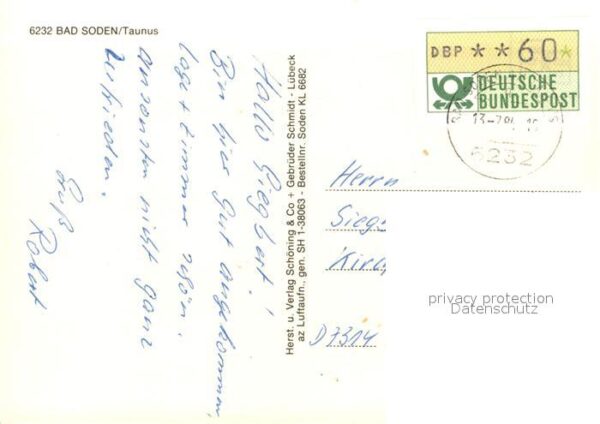 6232 BAD SODEN/Taunus
Hallo Siegbert!
Bin hier gut angekommen,
Lage + Zimmer schön.
ansonsten nicht ganz
zufrieden.
Gruß
Robert
Herst. u. Verlag Schöning & Co + Gebrüder Schmidt - Lübeck
az Luftaufn., gen. SH 1-38063 - Bestellnr. Soden KL 6682
DBP * * 60 *
DEUTSCHE
BUNDESPOST
6232
Herrn
Sieg
Kirc
D 7314
privacy protection
Datenschutz